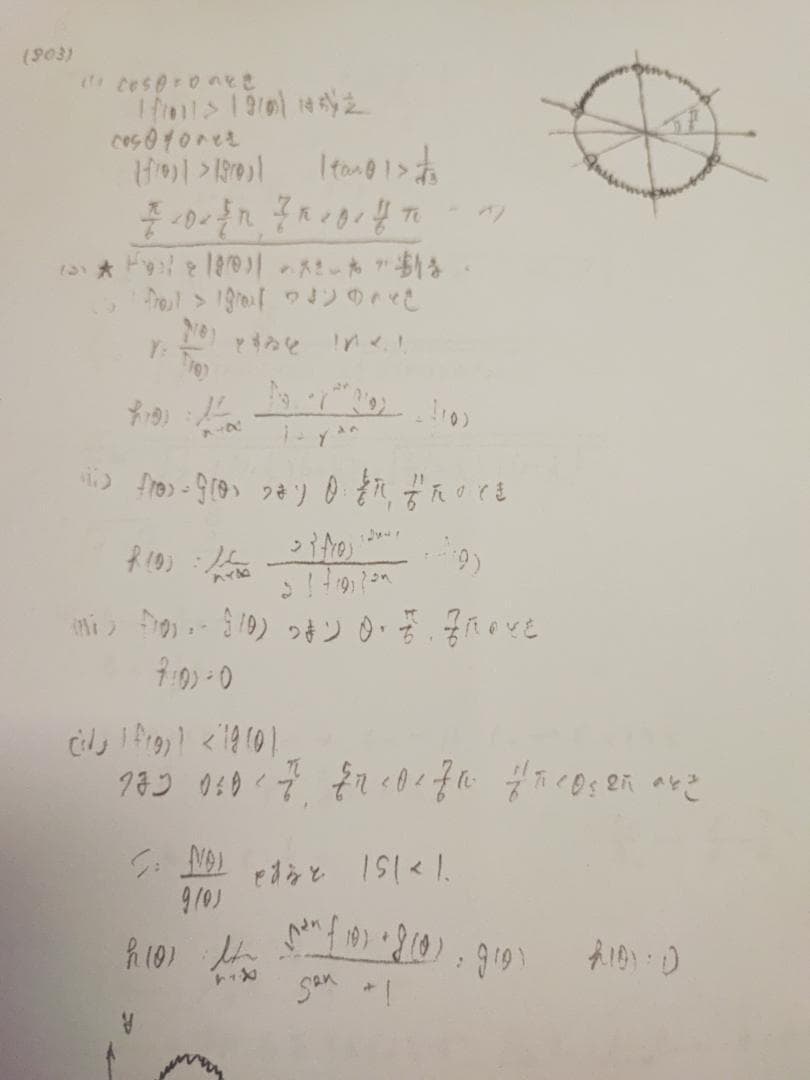 (903)
(1) cosθ=0 のとき
|f(θ)| > |g(θ)| は成立
cosθ≠0 のとき
|f(θ)| > |g(θ)| |tanθ| > 1/√3
π/6 < θ < 5/6 π, 7/6 π < θ < 11/6 π
π/6
(2) ★ |f(θ)| と |g(θ)| の大きい方で割る.
|f(θ)| > |g(θ)| つまり のとき
r = g(θ)/f(θ) とすると |r| < 1.
h(θ) = lim n→∞ f(θ) + r^2n g(θ) / 1 + r^2n = f(θ)
ii) f(θ) = g(θ) つまり θ = 5/6 π, 11/6 π のとき
h(θ) = lim n→∞ 2{f(θ)}^2n+1 / 2{f(θ)}^2n = f(θ)
iii) f(θ) = -g(θ) つまり θ = π/6, 7/6 π のとき
(θ) = 0
(iv) |f(θ)| < |g(θ)|
つまり 0 ≤ θ < π/6, 5/6 π < θ < 7/6 π 11/6 π < θ ≤ 2π のとき
S = f(θ)/g(θ) とすると |S| < 1.
h(θ) = lim n→∞ S^2n f(θ) + g(θ) / S^2n + 1 = g(θ) h(θ) = 0